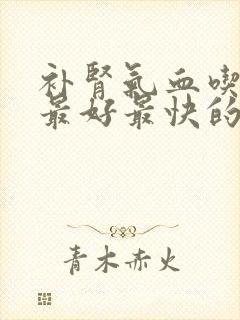 补肾氣血喫
最好最快的
青木赤火